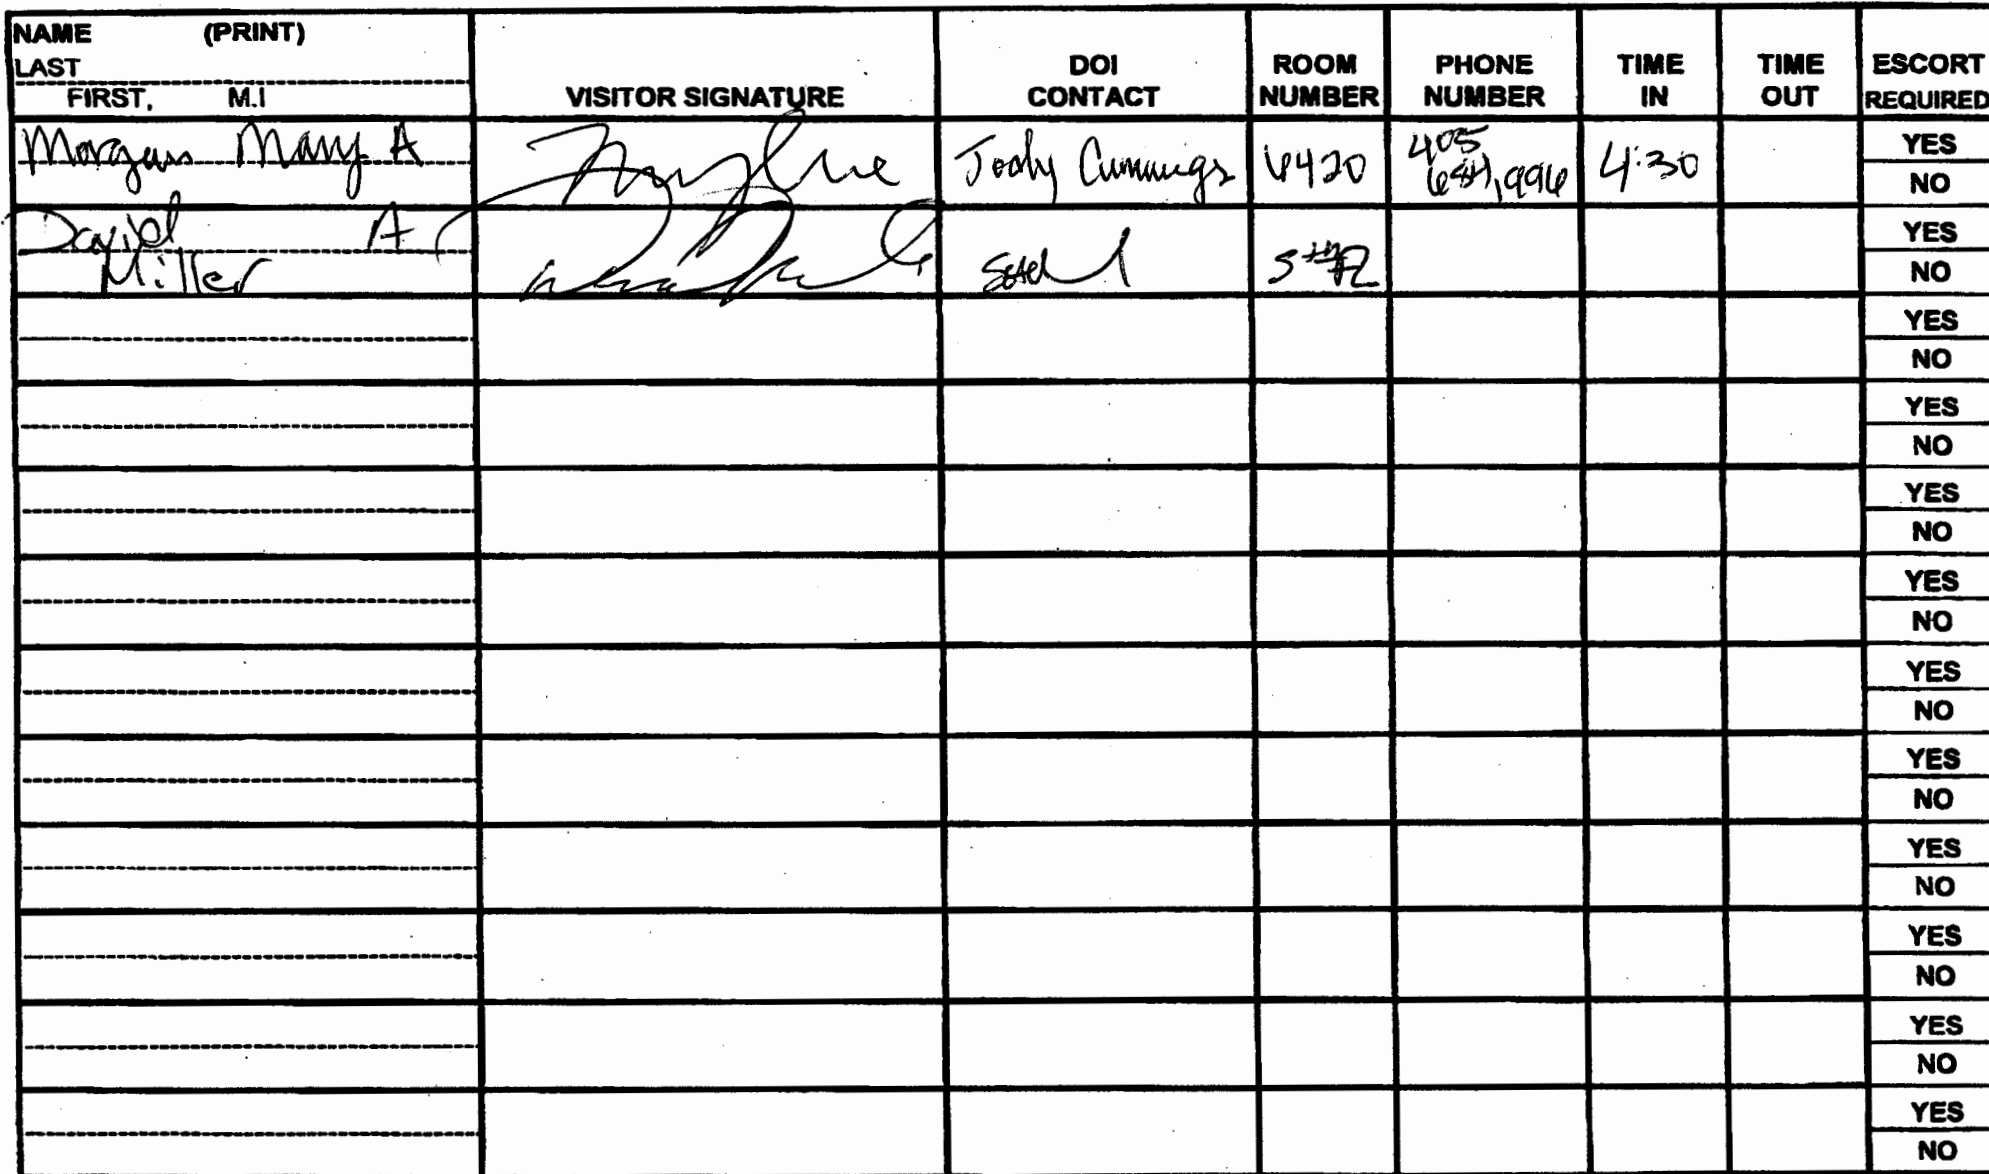 NAME (PRINT)
LAST
FIRST, M.I
VISITOR SIGNATURE
DOI CONTACT
ROOM NUMBER
PHONE NUMBER
TIME IN
TIME OUT
ESCORT REQUIRED
Morgan Mary A
Jody Cummings
6420
405
4:30
YES
NO
David A
Miller
YES
NO
YES
NO
YES
NO
YES
NO
YES
NO
YES
NO
YES
NO
YES
NO
YES
NO
YES
NO
YES
NO